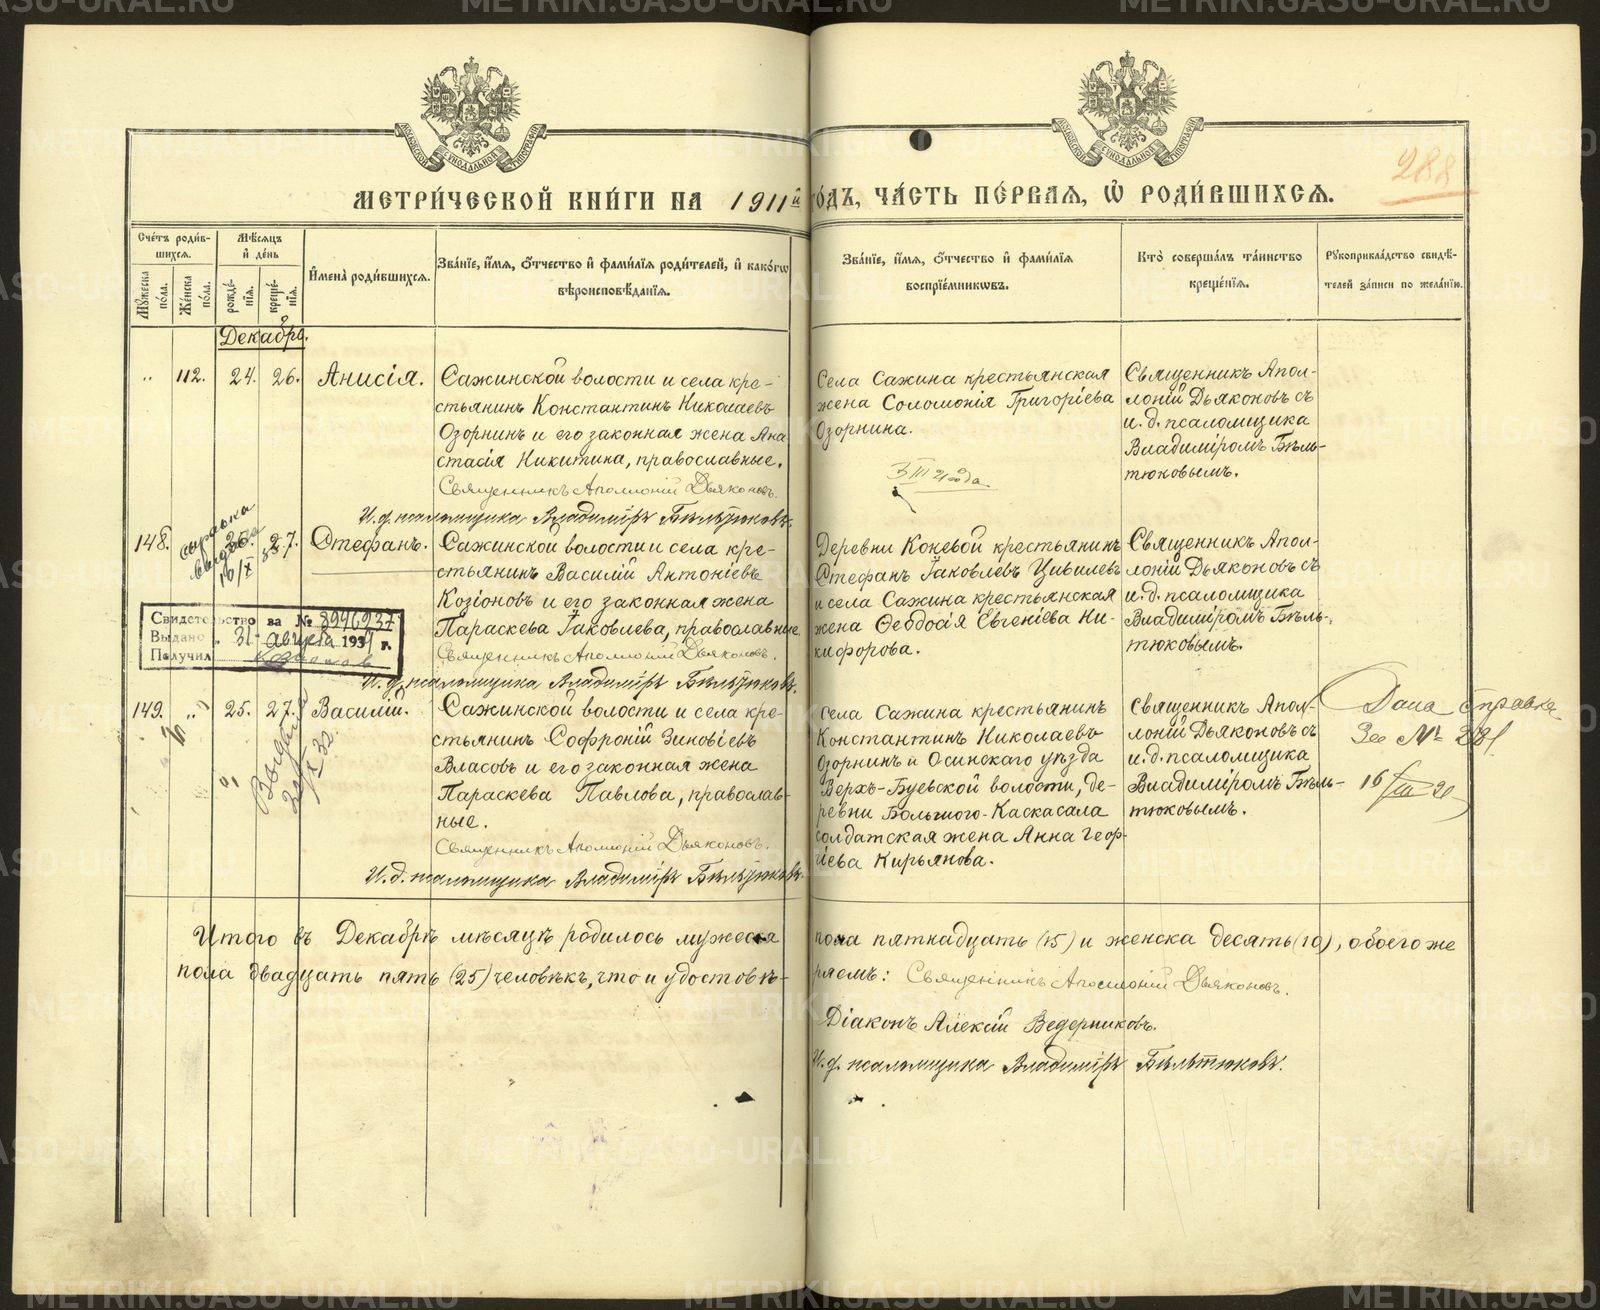 МЕТРИ́ЧЕСКОЙ КНИ́ГИ НА 1911й ГО́ДЪ, ЧА́СТЬ ПЕ́РВАЯ, Ѽ РОДИ́ВШИХСЯ.
288
Сче́тъ роди́вшихся.
Му́жеска по́ла.
Же́нска по́ла.
Мѣ́сяцъ и де́нь
рожде́нія.
креще́нія.
Имена̀ роди́вшихся.
Зва́ніе, и́мя, о́тчество и фами́лія роди́телей, и како́гѡ вѣроисповѣ́данія.
Зва́ніе, и́мя, о́тчество и фами́лія воспріе́мникѡвъ.
Кто̀ соверша́лъ та́инство креще́нія.
Рукоприкла́дство свидѣ́телей за́писи по жела́нію.
Декабрь.
„ 112. 24. 26. Анисія.
Сажинской волости и села кре-
стьянинъ Константинъ Николаевъ
Озорнинъ и его законная жена Ана
стасія Никитина, православные.
Священникъ Аполлоній Дьяконовъ.
И. д. псаломщика Владиміръ Бѣльтюковъ.
Села Сажина крестьянская
жена Соломонія Григоріева
Озорнина.
III 21 года
Священникъ Апол-
лоній Дьяконовъ съ
и. д. псаломщика
Владиміромъ Бѣль-
тюковымъ.
148. 25. 27. Стефанъ.
справка
выдана
16/X
Сажинской волости и села кре-
стьянинъ Василій Антоніевъ
Козіоновъ и его законная жена
Параскева Іаковлева, православные
Священникъ Аполлоній Дьяконовъ.
И. д. псаломщика Владиміръ Бѣльтюковъ.
Деревни Коневой крестьянинъ
Стефанъ Іаковлевъ Цивилевъ
и села Сажина крестьянская
жена Ѳеодосія Евгеніева Ни-
кифорова.
Священникъ Апол-
лоній Дьяконовъ съ
и. д. псаломщика
Владиміромъ Бѣль-
тюковымъ.
Свидетельство ва № 8946937
Выдано „ 31 августа 1934 г.
Получил
149. „ 25. 27. Василій.
Сажинской волости и села кре-
стьянинъ Софроній Зиновіевъ
Власовъ и его законная жена
Параскева Павлова, православ-
ные.
Священникъ Аполлоній Дьяконовъ.
И. д. псаломщика Владиміръ Бѣльтюковъ.
Села Сажина крестьянинъ
Константинъ Николаевъ
Озорнинъ и Осинскаго уѣзда
Верхъ-Буевской волости, де-
ревни Большого-Каскасала
солдатская жена Анна Геор-
гіева Кирьянова.
Священникъ Апол-
лоній Дьяконовъ съ
и. д. псаломщика
Владиміромъ Бѣль-
тюковымъ.
Дана справка
За № 281
16/III 20
Итого въ Декабрѣ мѣсяцѣ родилось мужеска пола пятнадцать (15) и женска десять (10), обоего же
пола двадцать пять (25) человѣкъ, что и удостовѣ-ряемъ: Священникъ Аполлоній Дьяконовъ.
Діаконъ Алексій Ведерниковъ.
И. д. псаломщика Владиміръ Бѣльтюковъ.
METRIKI.GASO-URAL.RU